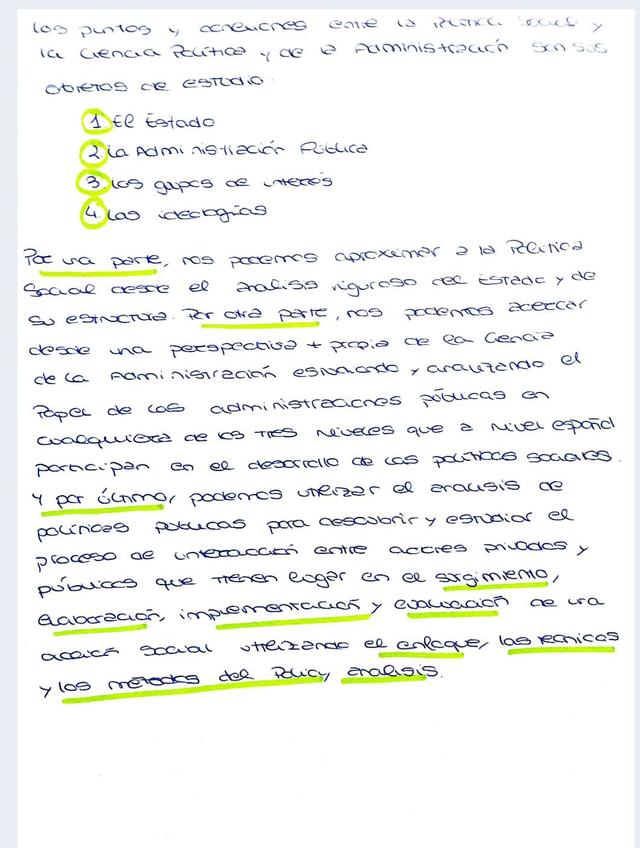 los puntos y conexiones entre la Política Social y
la Ciencia Política y de la Administración son sus
objetos de estudio:
1 El Estado
2 La Administración Pública
3. los grupos de interés
4. Las ideologías
Por una parte, nos podemos aproximar a la Política
Social desde el análisis riguroso del Estado y de
su estructura. Por otra parte, nos podemos acercar
desde una perspectiva + propia de la Ciencia
de la Administración estudiando y analizando el
Papel de las administraciones públicas en
cualquiera de los tres niveles que a nivel español
participan en el desarrollo de las políticas sociales.
Y por último, podemos utilizar el analisis de
políticas públicas para descubrir y estudiar el
proceso de interacción entre actores privados y
públicos que tienen lugar en el surgimiento,
elaboración, implementación y evaluación de una
acción social utilizando el enfoque, las técnicas
y los métodos del Policy analisis.